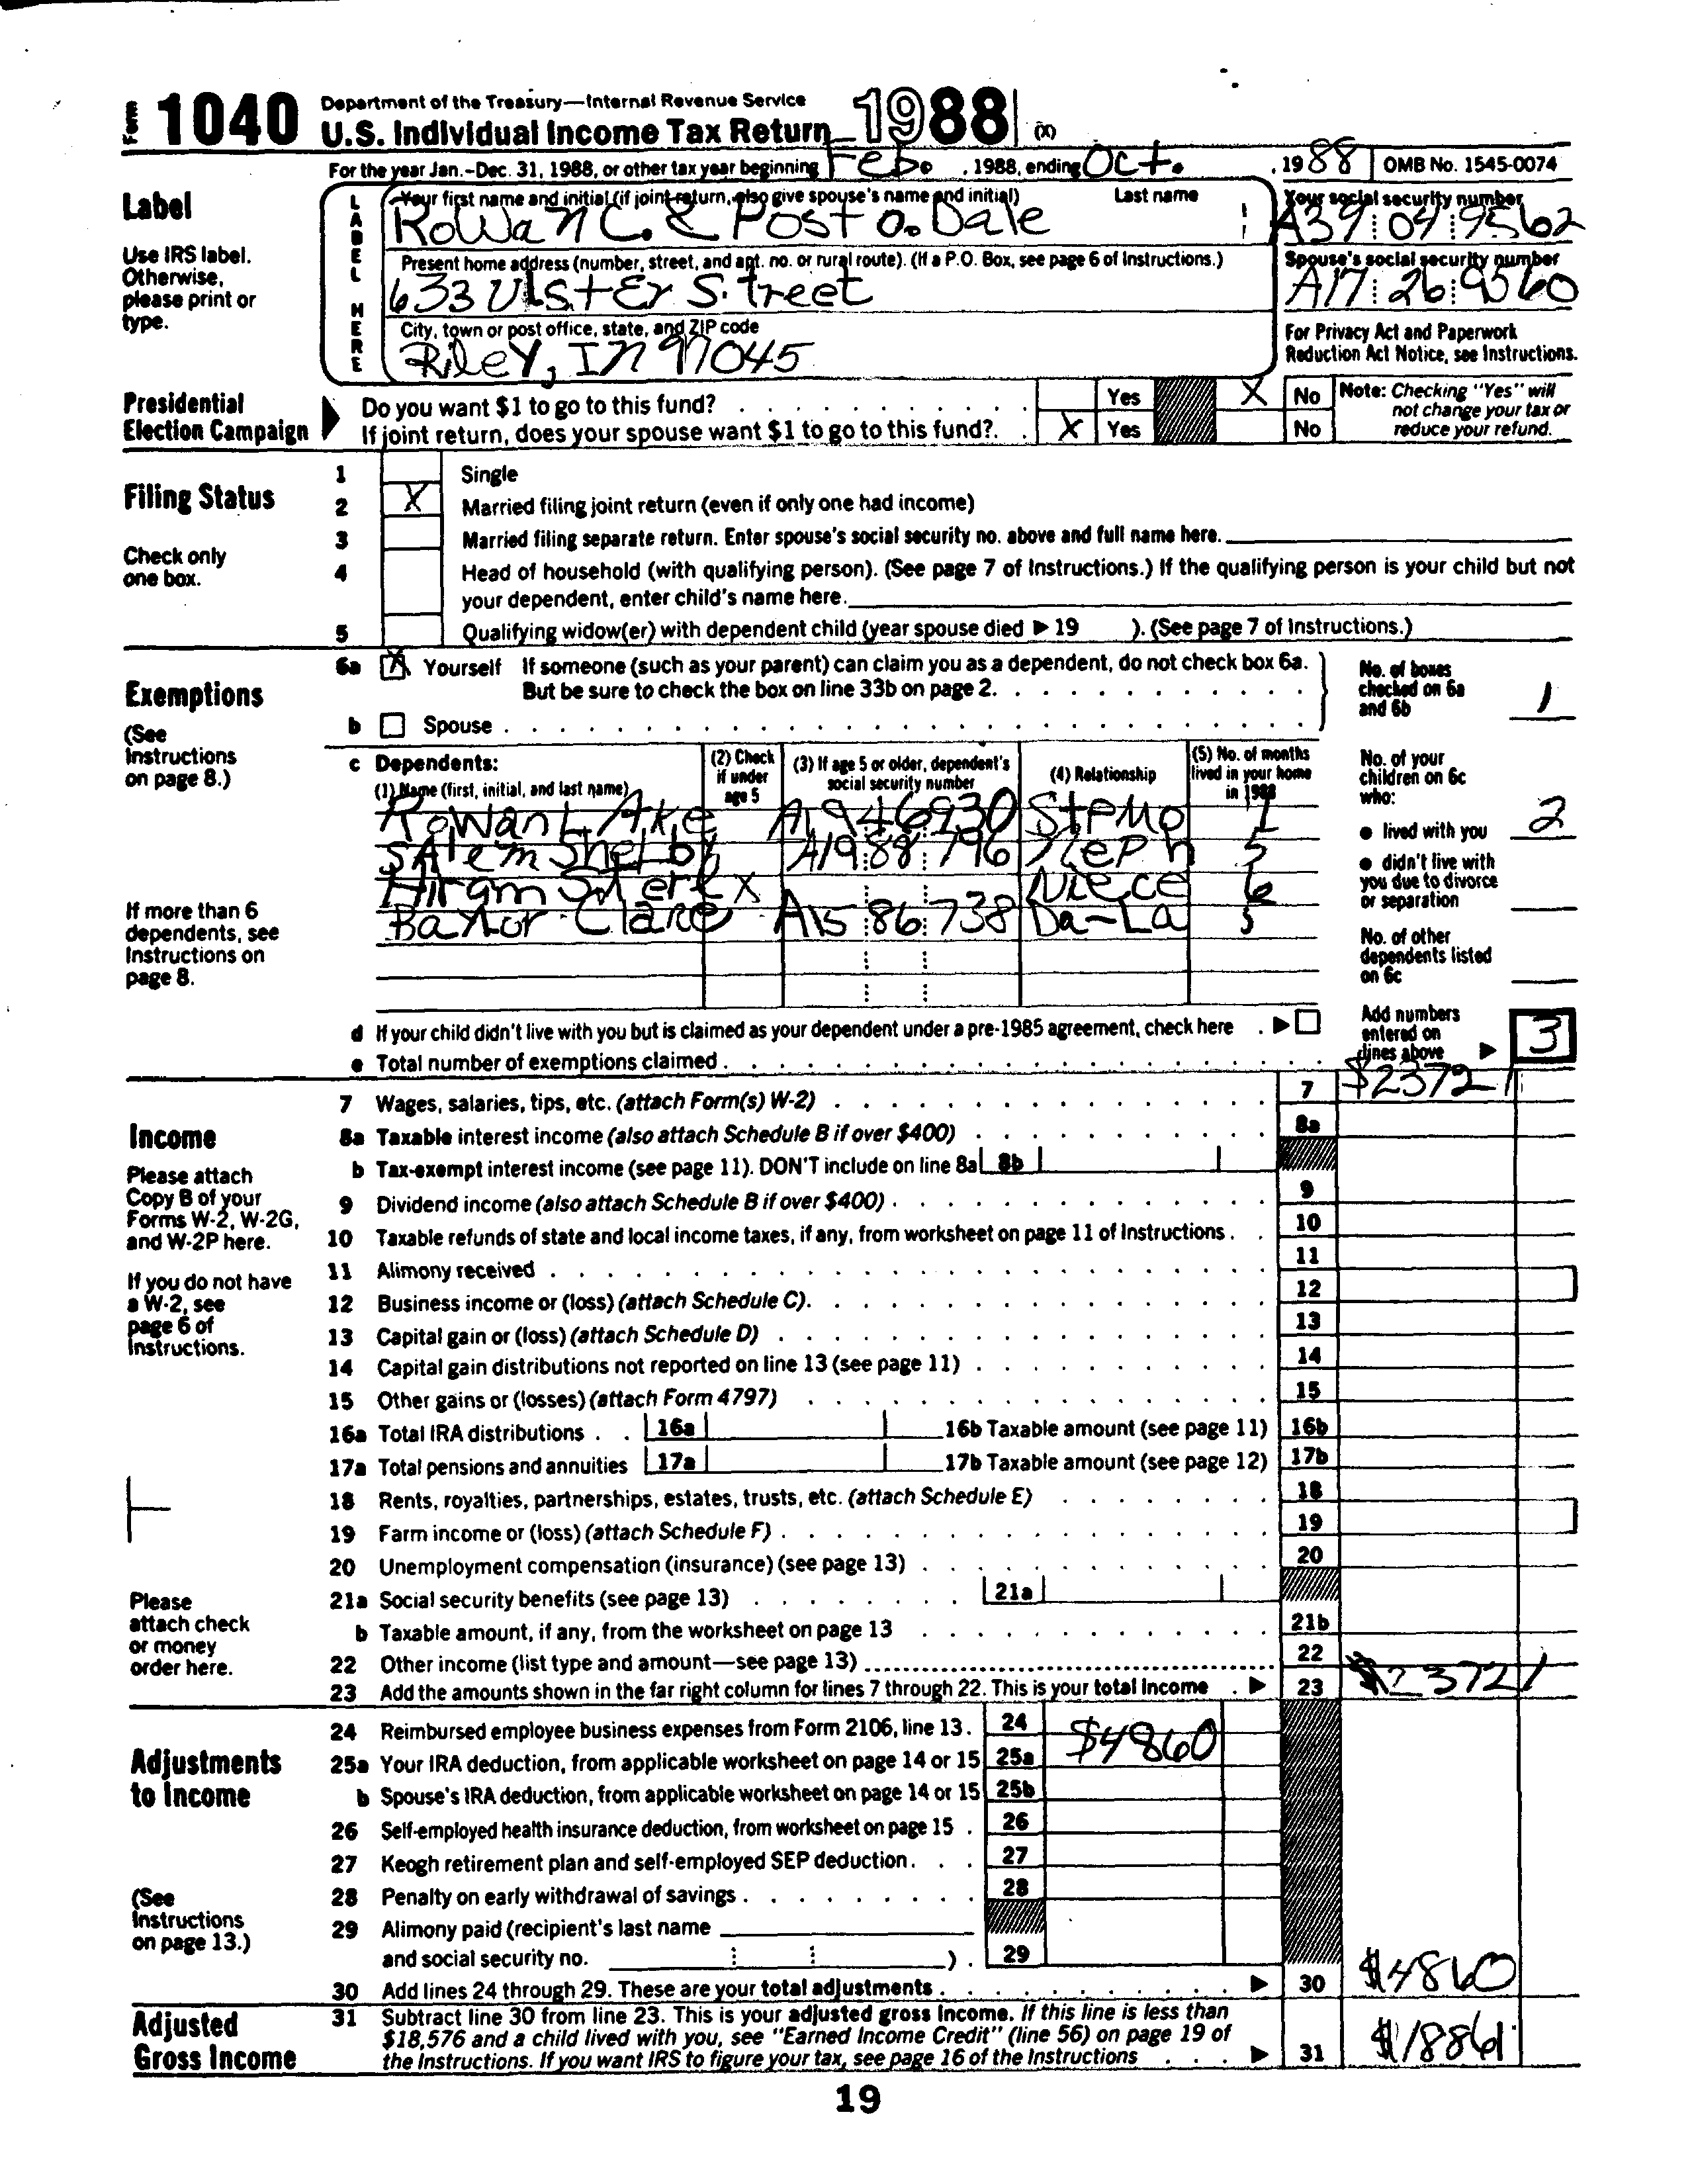 Form 1040 Department of the Treasury—Internal Revenue Service
U.S. Individual Income Tax Return 1988 (X)
For the year Jan.-Dec. 31, 1988, or other tax year beginning Feb. , 1988, ending Oct. , 19 88 OMB No. 1545-0074
Label
Use IRS label. Otherwise, please print or type.
LABEL HERE
Your first name and initial (if joint return, also give spouse's name and initial) Last name
Rowan C. & Post O. Dale
Your social security number
A39 04 9562
Present home address (number, street, and apt. no. or rural route). (If a P.O. Box, see page 6 of Instructions.)
633 Ulster Street
Spouse's social security number
A17 26 9560
City, town or post office, state, and ZIP code
Riley, IN 97045
For Privacy Act and Paperwork
Reduction Act Notice, see Instructions.
Presidential
Election Campaign
Do you want $1 to go to this fund? Yes X No
If joint return, does your spouse want $1 to go to this fund?. X Yes No
Note: Checking "Yes" will
not change your tax or
reduce your refund.
Filing Status
Check only
one box.
1 Single
2 X Married filing joint return (even if only one had income)
3 Married filing separate return. Enter spouse's social security no. above and full name here.
4 Head of household (with qualifying person). (See page 7 of Instructions.) If the qualifying person is your child but not
your dependent, enter child's name here.
5 Qualifying widow(er) with dependent child (year spouse died ▶ 19 ). (See page 7 of Instructions.)
Exemptions
(See
Instructions
on page 8.)
6a X Yourself If someone (such as your parent) can claim you as a dependent, do not check box 6a.
But be sure to check the box on line 33b on page 2.
b Spouse
No. of boxes
checked on 6a
and 6b 1
c Dependents:
(1) Name (first, initial, and last name)
(2) Check
if under
age 5
(3) If age 5 or older, dependent's
social security number
(4) Relationship
(5) No. of months
lived in your home
in 1988
Rowan L Ake A1 94 6930 StepMo 1
Salem Shelby A19 88 796 Neph 5
Hiram Smerk X Niece 6
Baxtor Clare A15 86 738 Da-La 5
No. of your
children on 6c
who:
● lived with you 2
● didn't live with
you due to divorce
or separation
No. of other
dependents listed
on 6c
If more than 6
dependents, see
Instructions on
page 8.
d If your child didn't live with you but is claimed as your dependent under a pre-1985 agreement, check here ▶
e Total number of exemptions claimed
Add numbers
entered on
lines above ▶ 3
Income
Please attach
Copy B of your
Forms W-2, W-2G,
and W-2P here.
If you do not have
a W-2, see
page 6 of
Instructions.
Please
attach check
or money
order here.
7 Wages, salaries, tips, etc. (attach Form(s) W-2) 7 $23721
8a Taxable interest income (also attach Schedule B if over $400) 8a
b Tax-exempt interest income (see page 11). DON'T include on line 8a 8b
9 Dividend income (also attach Schedule B if over $400) 9
10 Taxable refunds of state and local income taxes, if any, from worksheet on page 11 of Instructions 10
11 Alimony received 11
12 Business income or (loss) (attach Schedule C). 12
13 Capital gain or (loss) (attach Schedule D) 13
14 Capital gain distributions not reported on line 13 (see page 11) 14
15 Other gains or (losses) (attach Form 4797) 15
16a Total IRA distributions 16a 16b Taxable amount (see page 11) 16b
17a Total pensions and annuities 17a 17b Taxable amount (see page 12) 17b
18 Rents, royalties, partnerships, estates, trusts, etc. (attach Schedule E) 18
19 Farm income or (loss) (attach Schedule F) 19
20 Unemployment compensation (insurance) (see page 13) 20
21a Social security benefits (see page 13) 21a
b Taxable amount, if any, from the worksheet on page 13 21b
22 Other income (list type and amount—see page 13) 22
23 Add the amounts shown in the far right column for lines 7 through 22. This is your total income ▶ 23 $23721
Adjustments
to Income
(See
Instructions
on page 13.)
24 Reimbursed employee business expenses from Form 2106, line 13. 24
25a Your IRA deduction, from applicable worksheet on page 14 or 15 25a $4860
b Spouse's IRA deduction, from applicable worksheet on page 14 or 15 25b
26 Self-employed health insurance deduction, from worksheet on page 15 26
27 Keogh retirement plan and self-employed SEP deduction. 27
28 Penalty on early withdrawal of savings 28
29 Alimony paid (recipient's last name
and social security no. ) 29
30 Add lines 24 through 29. These are your total adjustments ▶ 30 $4860
Adjusted
Gross Income
31 Subtract line 30 from line 23. This is your adjusted gross income. If this line is less than
$18,576 and a child lived with you, see "Earned Income Credit" (line 56) on page 19 of
the Instructions. If you want IRS to figure your tax, see page 16 of the Instructions ▶ 31 $18861
19